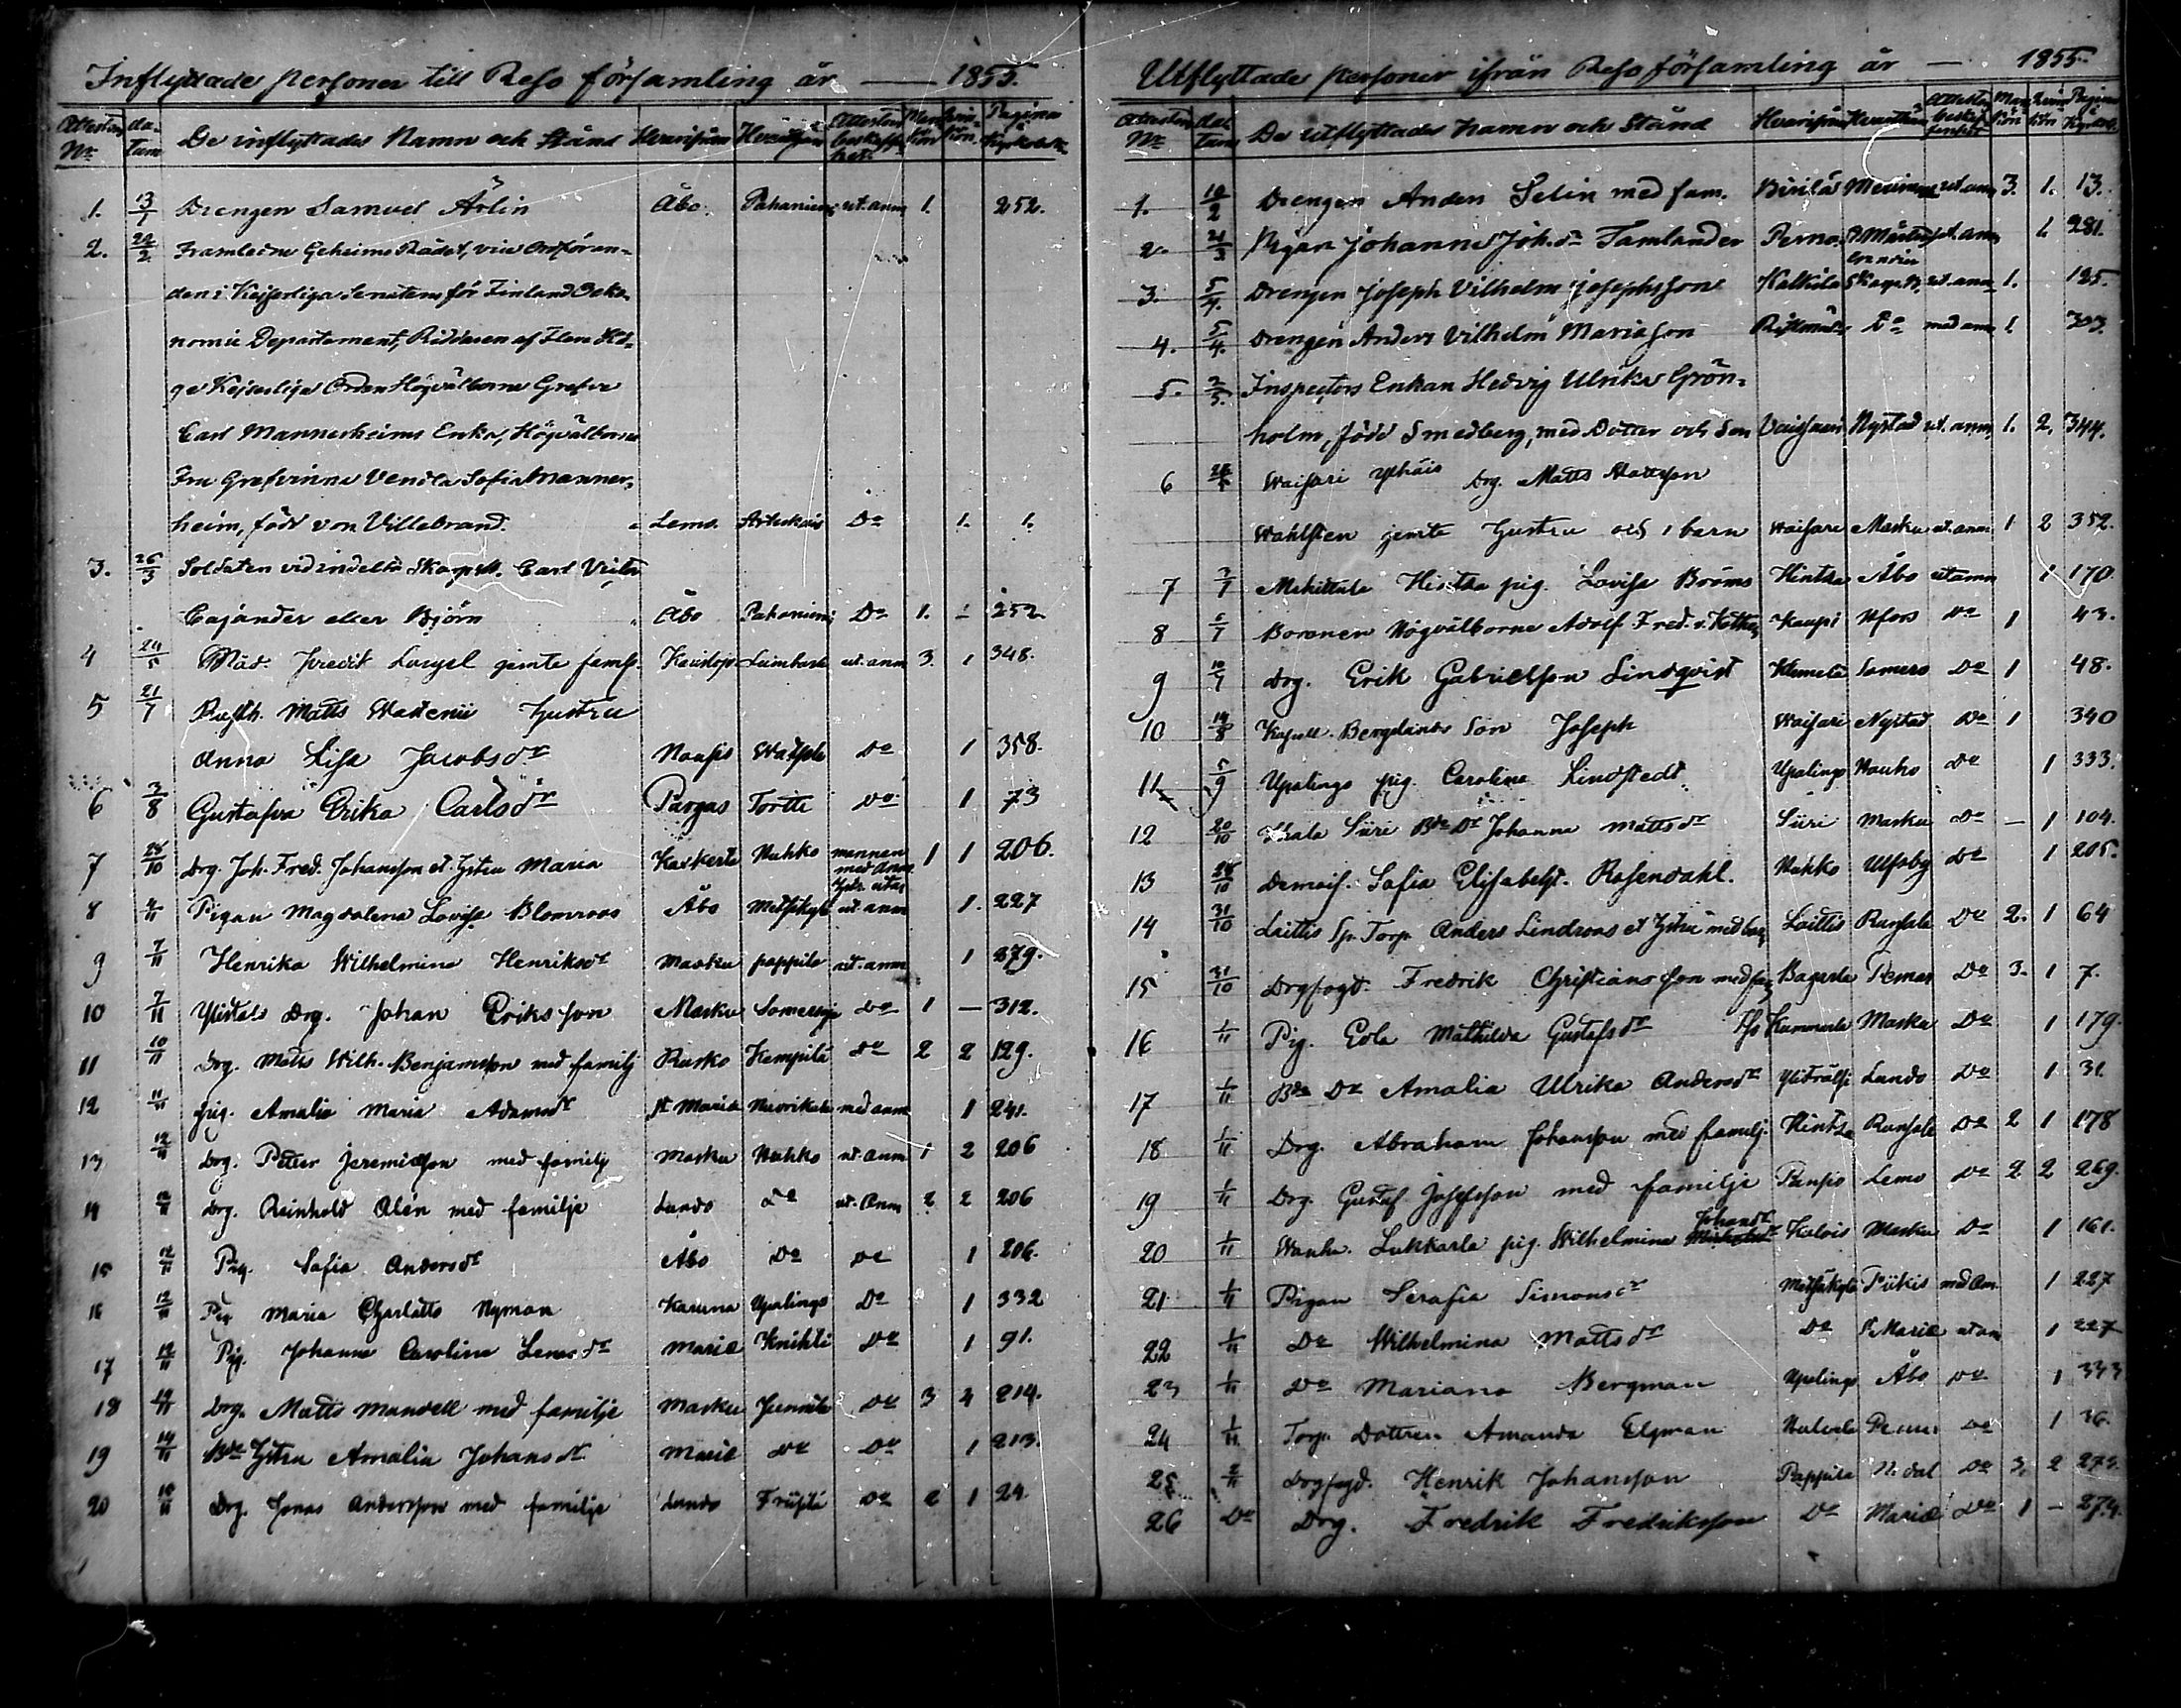 Inflyttade personer till Reso församling år — 1855.
Attestens No datum De inflyttades Namn och Stånd Hvarifrån Hvarthän Attestens beskaffenhet Mankön Qvinkön Pagina i Kyrkobok
1. 13/1 Drengen Samuel Ärlin Åbo. Pahaniemi ut. anm 1. 252.
2. 22/2 Framledne Geheime Rådet, vice Ordföran-
den i Kejserliga Senatens för Finland Oeko-
nomie Departement, Riddaren af flere Hö-
ge Kejserliga Orden Högvälborne Grefve
Carl Mannerheims Enka, Högvälborna
Fru Grefvinna Vendla Sofia Manner-
heim, född von Villebrand. Lemo. Do 1. 1.
3. 26/3 Soldaten vid indelta Skarpsk. Carl
Cajander eller Björn Åbo Pahaniemi Do 1. – 252
4 24/5 gemte famlj. ut. anm 3. 1 348.
5 21/7 Rusth. Matts Hustru
Anna Lisa Jacobsdr Do 1 358.
6 3/8 Gustafva Erika Carlsdr Pargas Do 1 73
7 28/10 Drg. Joh. Fred. Johansson et. Hstru Maria Kaxkerta Nuhko mannen med anm 1 1 206.
8 4/11 Pigan Magdalena Lovisa Blomroos Åbo Metsäkylä ut. anm 1. 227
9 7/11 Henrika Wilhelmina Henriksdr Masku pappila ut. anm 1 279.
10 7/11 Drg. Johan Eriksson Masku Do 1 — 312.
11 10/11 Drg. Matts Wilh. Benjamsson med familj Rusko Kempilä Do 2 2 129.
12 11/11 pig. Amalia Maria Adamsdr St Marie med anm 1 241.
13 12/11 Drg. Petter Jeremiasson med familj Masku Nuhko ut. anm 1 2 206
14 12/11 Drg. Reinhold Alén med familje Lundo Do ut. Anm 2 2 206
15 12/11 Pig. Safia Andersdr Åbo Do Do 1 206.
16 12/11 Pig Maria Charlotta Nyman Karuna Upalingo Do 1 332
17 12/11 Pig. Johanna Carolina Marie Knihti Do 1 91.
18 14/11 Drg. Matts Mandell med familje Masku Do 3 4 214.
19 14/11 Bde Hstru Amalia Johansdr Marie Do Do 1 213.
20 15/11 Drg. Jonas Andersson med familje Lundo Do 2 1 24.
Utflyttade personer ifrån Reso församling år — 1855.
Attestens No datum De utflyttades Namn och Stånd Hvarifrån Hvarthän Attestens beskaffenhet Mankön Qvinkön Pagina i Kyrkobok
1. 10/2 Drengen Anders Selin med fam. ut anm 3. 1. 13.
2. 21/3 Pigan Johanna Joh.dr Tamlander Perno. ut. anm 1. 281.
3. 5/4. Drengen Joseph Vilhelm Josephsson ut. anm 1. 125.
4. 5/4. Drengen Anders Vilhelm Mariason Do med anm 1. 303.
5. 2/5. Inspectors Enkan Hedvig Ulrika Grön-
holm, född Smedberg, med Dotter och Son Vaisaari Nystad ut. anm 1. 2. 344.
6 Waisari Drg. Matts Mattsson
Wahlsten jemte hustru och 1 barn Waisari Masku ut. anm 1 2 352.
7 7/7 Hintsa pig. Lovisa Broms Hintsa Åbo ut anm 1 170.
8 6/7 Baronen Högvälborne Adolf Fred. v. Kaupi Hfors Do 1 43.
9 10/7 Drg. Erik Gabrielsson Lindqvist Klemelä Somero Do 1 48.
10 14/8 Kapell. Bergdans Son Joseph Waisari Nystad Do 1 340
11 5/9 Upalingo pig. Carolina Lindstedt Upalingo Nauvo Do 1 333.
12 20/10 Ihala Siiri Bde Dr Johanna Mattsdr Siiri Masku Do — 1 104.
13 28/10 Demois. Safia Elisabeth. Rosendahl. Nuhko Ulfsby Do 1 205.
14 31/10 Laittis Sp. Torp. Anders Lindroos et Hstru med barn Laittis Do 2. 1 64
15 31/10 Drgfogd. Fredrik Christiansson med fam Bagarla Pemar Do 3. 1 7.
16 1/11 Pig. Eva Mathilda Gustafsdr Kummerla Masku Do 1 179.
17 1/11 Bde Dr Amalia Ulrika Andersdr Lundo Do 1 31.
18 1/11 Drg. Abraham Johansson med familj. Hintsa Do 2 1 178
19 1/11 Drg. Gustaf Josefsson med familje Pansio Lemo Do 2 2 269.
20 1/11 Wanha. Lukkarla pig. Wilhelmina Johansdr Kalois Masku Do 1 161.
21 1/11 Pigan Serafia Simonsdr Metsäkylä Piikis med Anm. 1 227
22 1/11 Do Wilhelmina Mattsdr Do St Marie ut an 1 227
23 1/11 Do Mariana Bergman Upalingo Åbo Do 1 333
24 1/11 Torp. Dottren Amanda Elgman Pemar Do 1 36.
25 2/11 Drgfogd. Henrik Johansson Pappila N. dal Do 3. 2 273.
26 Do Drg. Fredrik Fredriksson Do Mariæ Do 1 – 274.